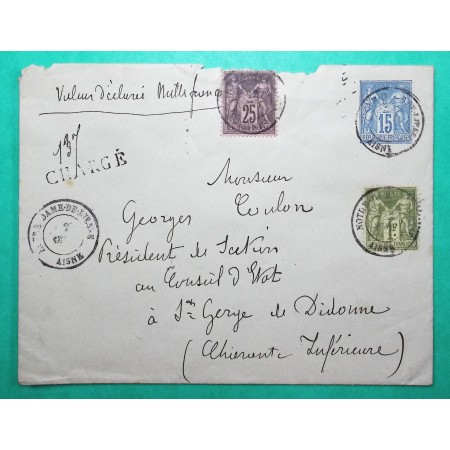 Valeur déclarée Mille francs
25
15
137
CHARGÉ
Monsieur
Georges Coulon
NOTRE-DAME-DE-LIESSE
AISNE
1F
Président de Section
au Conseil d'Etat
à St Georges de Didonne
(Charente Inférieure)